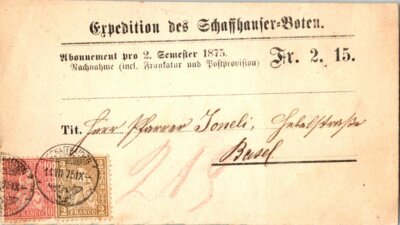 Expedition des Schaffhauser-Boten.
Abonnement pro 2. Semester 1875.
Nachnahme (incl. Frankatur und Postprovision)
Fr. 2. 15.
Tit. Herr Pfarrer Joneli, Hebelstraße
Basel
215
10 FRANCO 10
2 FRANCO 2